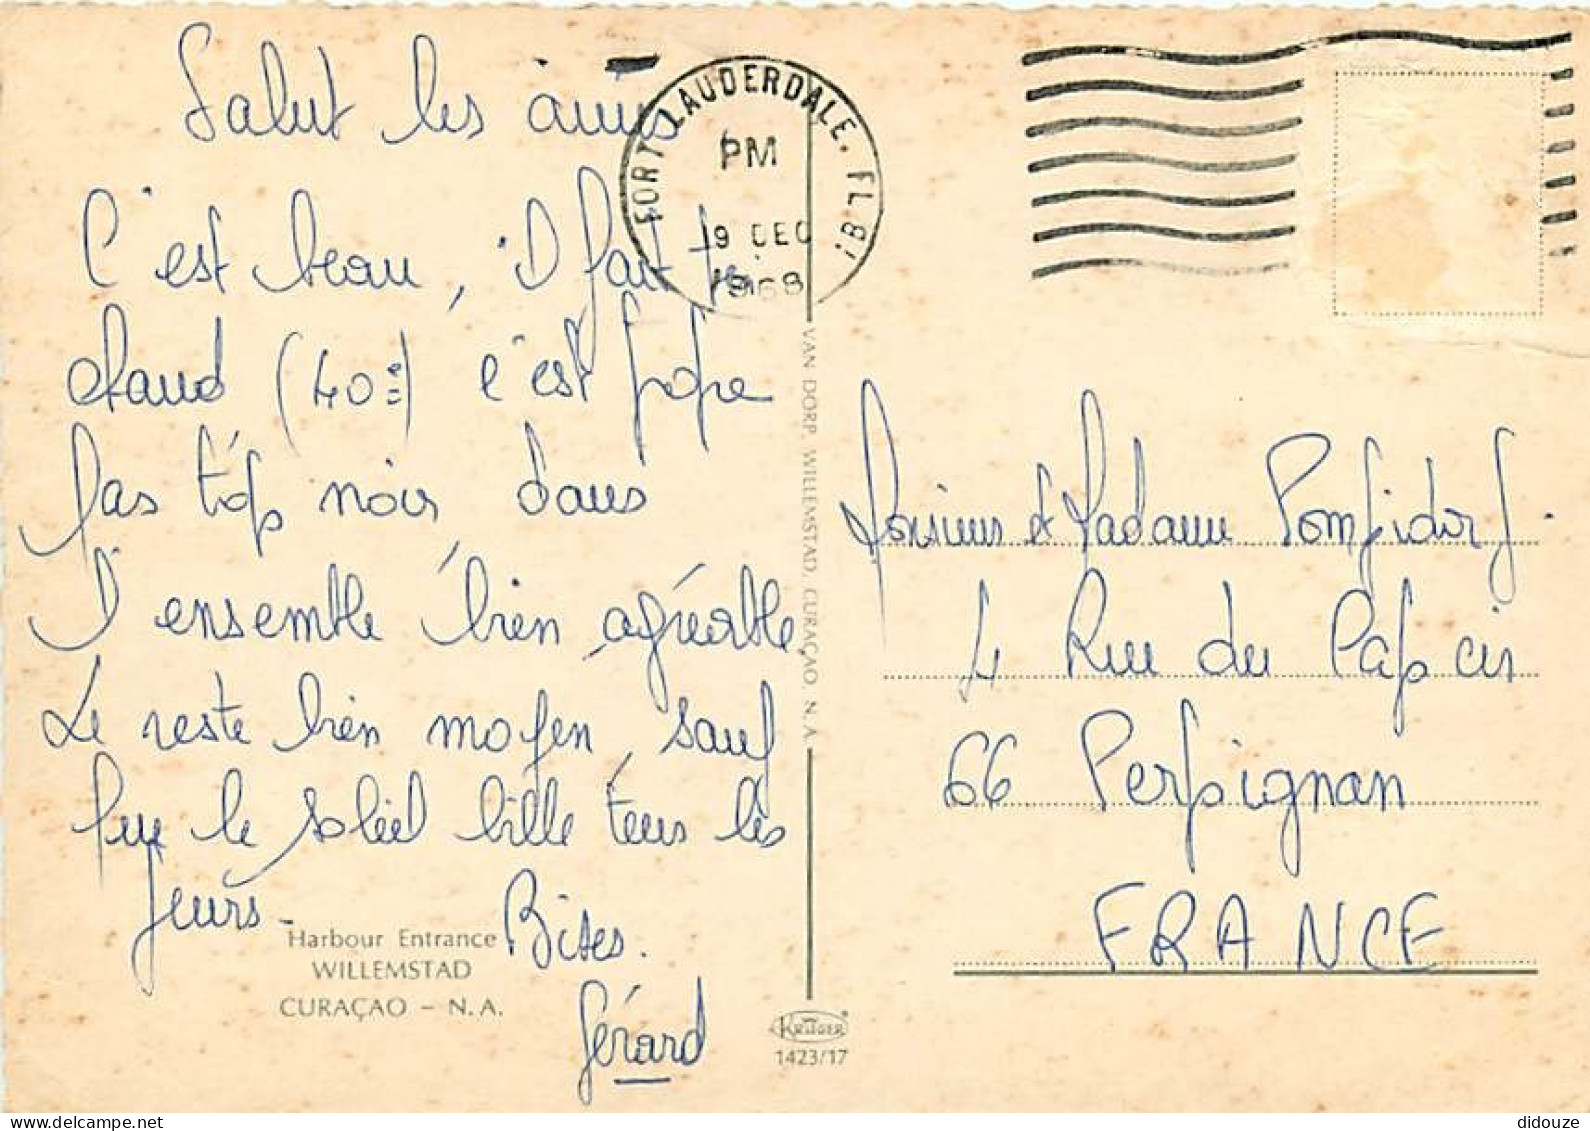 Salut les amis
C'est beau, il fait
chaud (40°) c'est propre
pas trop noir dans
l'ensemble bien agréable
Le reste bien moyen, sauf
que le soleil brille tous les
jours.
Bises.
Gérard
Harbour Entrance
WILLEMSTAD
CURAÇAO – N.A.
FORT LAUDERDALE, FLA.
PM
19 DEC
1968
VAN DORP, WILLEMSTAD, CURAÇAO, N.A.
KRÜGER
1423/17
Monsieur & Madame Pompidor J.
4 Rue du
66 Perpignan
FRANCE
didouze